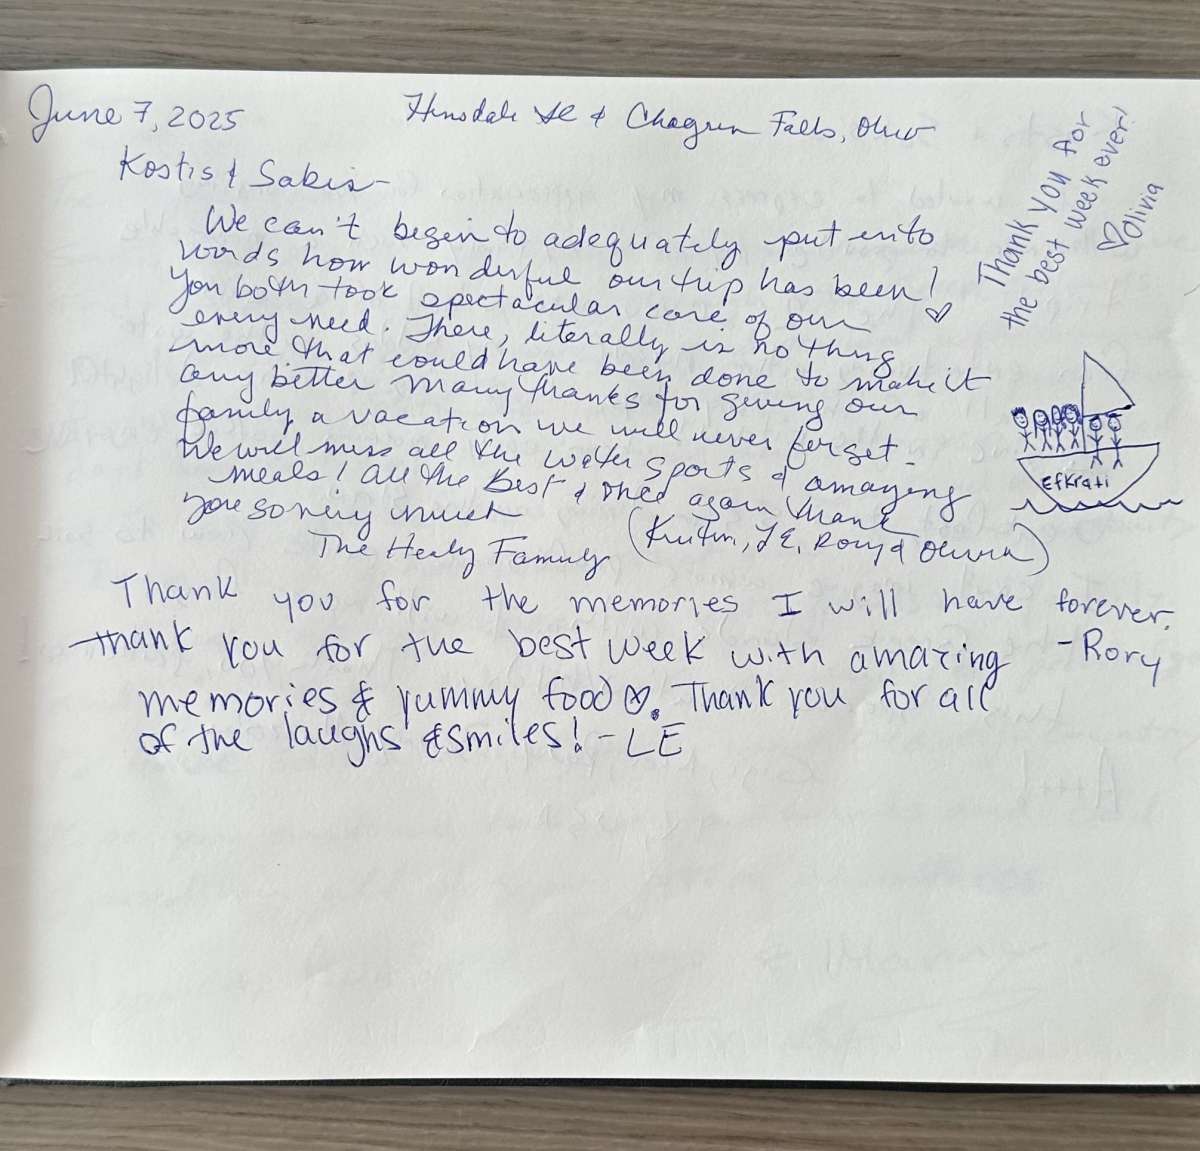 June 7, 2025
Hinsdale IL & Chagrin Falls, Ohio
Kostis & Sakis -
We can't begin to adequately put into
words how wonderful our trip has been!
You both took spectacular care of our
every need. There, literally is nothing
more that could have been done to make it
any better Many thanks for giving our
family a vacation we will never forget.
We will miss all the water sports & amazing
meals! All the Best & once again thank
you so very much
The Healy Family
(Kristin, LE, Rory & Olivia)
Thank you for
the best week ever!
♡ Olivia
Efkrati
Thank you for the memories I will have forever.
- Rory
Thank you for the best week with amazing
memories & yummy food ♡. Thank you for all
of the laughs & smiles! - LE